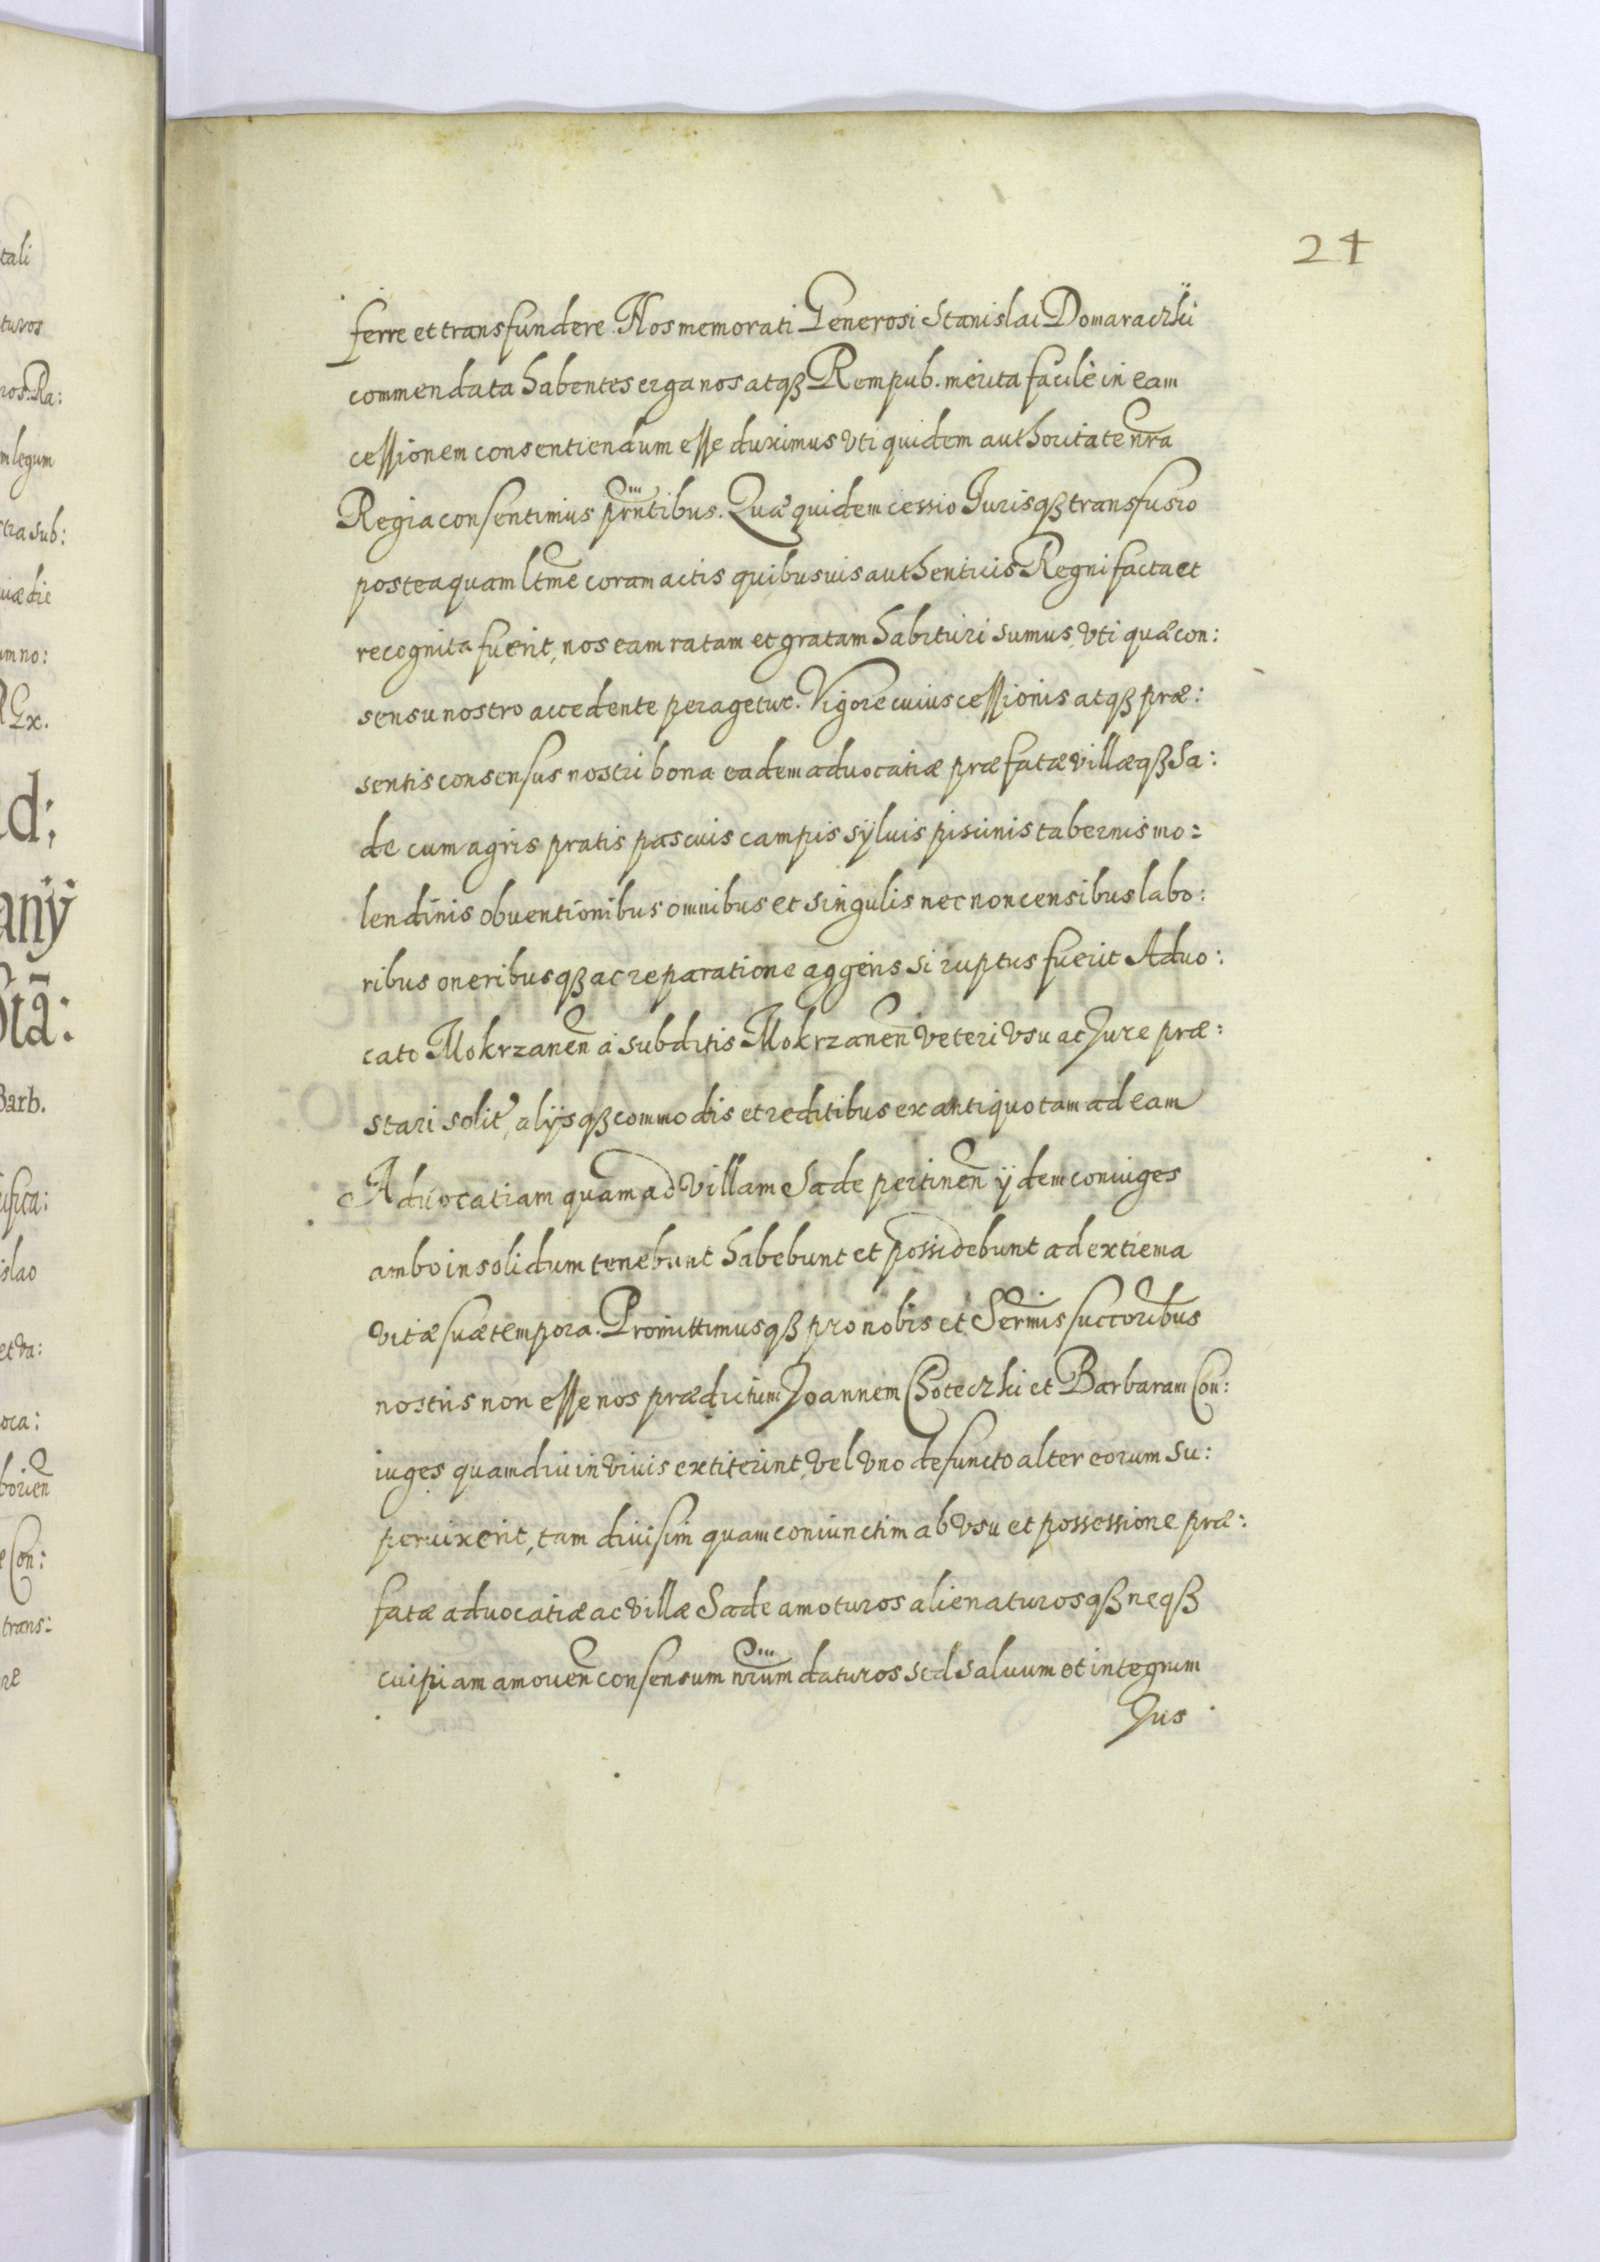 24
ferre et transfundere. Nos memorati Generosi Stanislai Domaraczki
commendata habentes erga nos atqꝫ Rempub. merita facilè in eam
cessionem consentiendum esse duximus vti quidem authoritate nr̃a
Regia consentimus pr̃ntibus. Quæ quidem cessio Jurisqꝫ transfusio
posteaquam ltm̃e coram actis quibusuis authenticis Regni facta et
recognita fuerit, nos eam ratam et gratam habituri sumus, vti quæ con:
sensu nostro accedente peragetur. Vigore cuius cessionis atqꝫ præ:
sentis consensus nostri bona eadem aduocatiæ præfatæ villæqꝫ Sa:
de cum agris pratis pascuis campis syluis piscinis tabernis mo:
lendinis obuentionibus omnibus et singulis nec non censibus labo:
ribus oneribusqꝫ ac reparatione aggeris si ruptus fuerit Aduo:
cato Mokrzaneñ à subditis Mokrzaneñ veteri vsu ac Jure præ:
stari solit̉, alijsqꝫ commodis et reditibus ex antiquo tam ad eam
Aduocatiam quam ad villam Sade pertineñ ijdem coniuges
ambo in solidum tenebunt habebunt et possidebunt ad extrema
vitæ suæ tempora. Promittimusqꝫ pro nobis et Serm̃is succoribus
nostris non esse nos prædictum Joannem Choteczki et Barbaram Con:
iuges quamdiu in viuis extiterint, vel vno defuncto alter eorum su:
peruixerit, tam diuisim quam coniunctim ab vsu et possessione præ:
fatæ aduocatiæ ac villæ Sade amoturos alienaturosqꝫ neqꝫ
cuipiam amoueñ consensum nr̃um daturos sed saluum et integrum
Jus
tali
turos
nos. Ra:
m legum
tra sub:
uæ die
um no:
REx.
d:
anÿ
Barb.
islao
et va:
oca:
borien
Con:
trans:
re